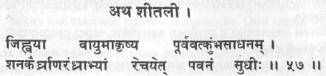 अथ शीतली ।
जिह्वया वायुमाकृष्य पूर्ववत्कुंभसाधनम् ।
शनकैर्घ्राणरंध्राभ्यां रेचयेत् पवनं सुधीः ॥ ५७ ॥